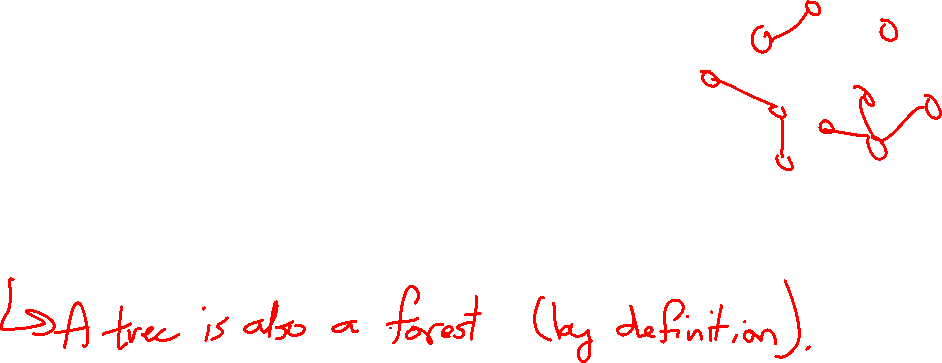 ↳ A tree is also a forest (by definition).